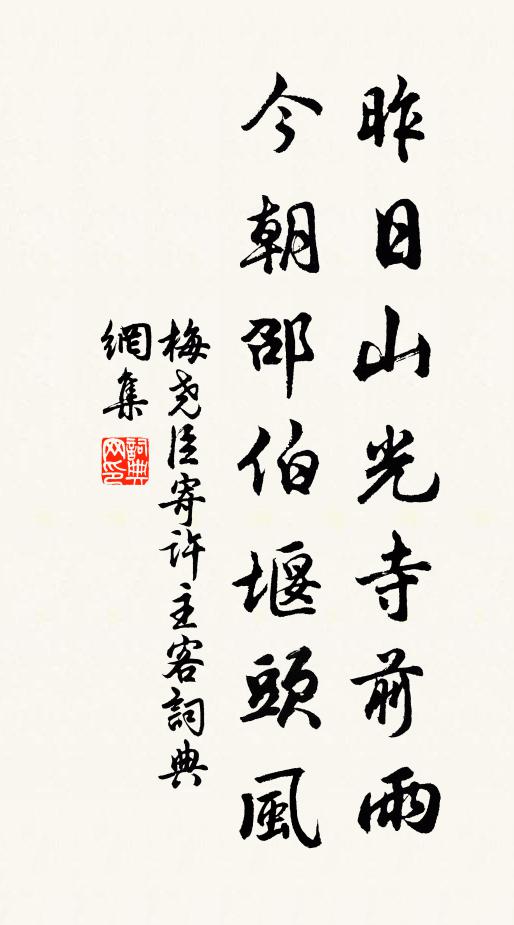 昨日山光寺前雨
今朝邵伯堰頭風
梅堯臣寄許主客詞典
網集
詞典網印